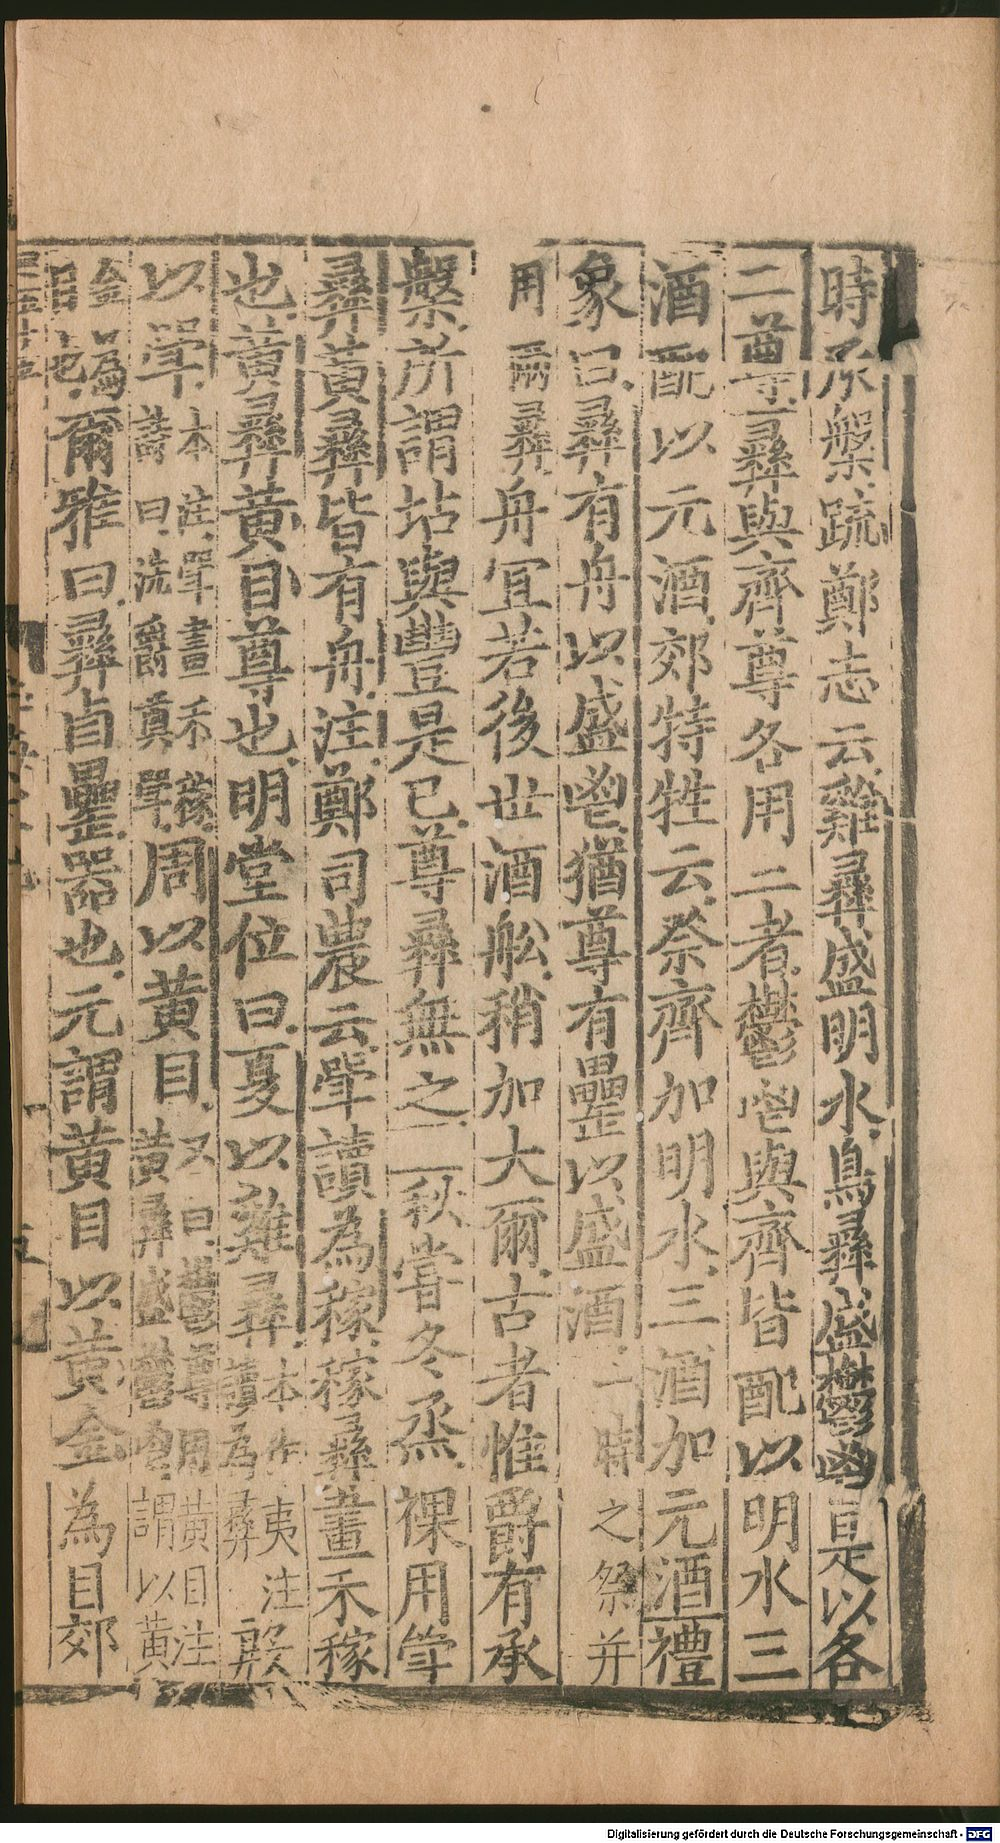 時承槃䟽鄭志云雞彝盛明水鳥彝盛鬱鬯是以各
二尊彝與齊尊各用二者鬱鬯與齊皆配以明水三
酒配以元酒郊特牲云祭齊加明水三酒加元酒禮
象曰彝有舟以盛鬯猶尊有罍以盛酒一時之祭并
用兩彝舟冝若後世酒船稍加大爾古者惟爵有承
槃所謂坫與豐是已尊彝無之 秋嘗冬烝祼用斝
彝黃彝皆有舟注鄭司農云斝讀為稼稼彝畫禾稼
也黃彝黃目尊也明堂位曰夏以雞彝本作夷注讀為彝殷
以斝本注斝畫禾稼䟽曰流爵奠斝周以黃目又曰鬱尊用黃目注黃彝盛鬱鬯謂以黃
金為目也爾雅曰彝卣罍器也元謂黃目以黃金為目郊